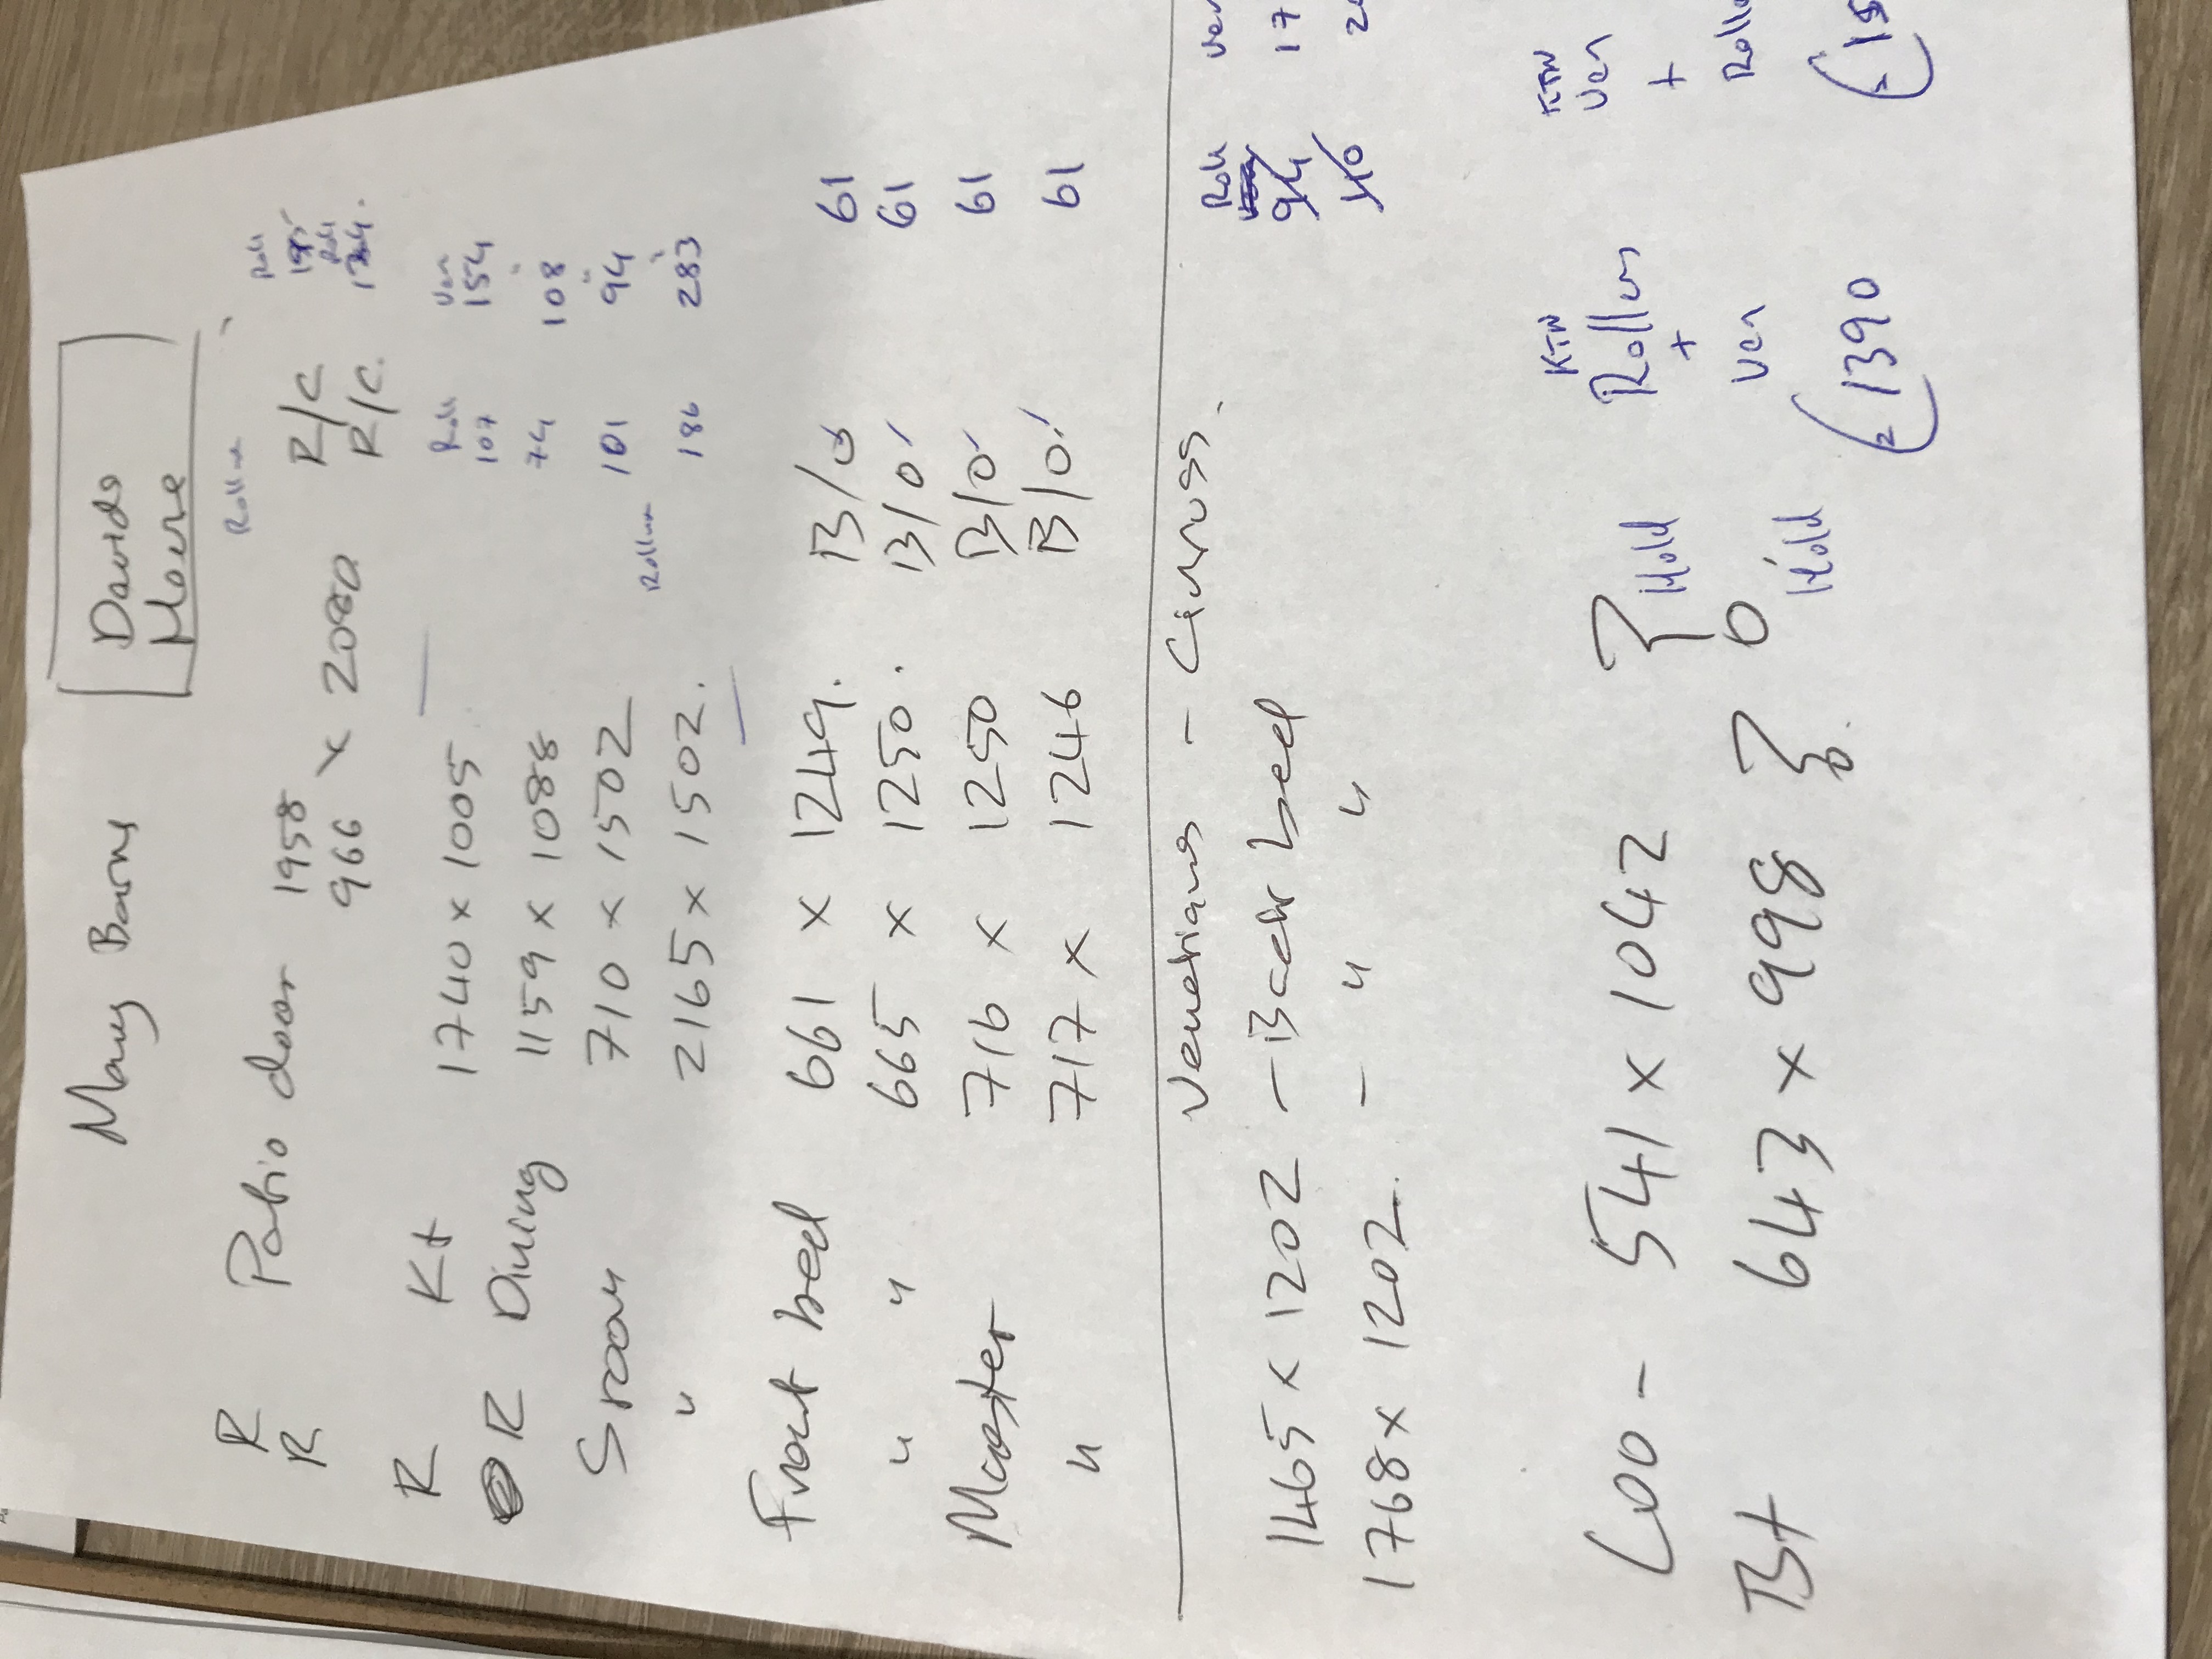 Mary Barns
Davids
Move
Roller
R Patio door 1958 R/C Roll 195
R 966 x 2080 R/C. Roll
Roll Ven
R Kt 1740 x 1005 107 154
R Dining 1159 x 1088 74 108 "
Sroom 710 x 1502 101 94 "
Roller
" 2165 x 1502. 186 283 "
Front bed 661 x 1249. B/O 61
" " 665 x 1250. B/O 61
Master 716 x 1250 B/O 61
" 717 x 1246 B/O 61
Venetians - Cinross.
Roll Ven
1465 x 1202 - Back bed 94 17
1768 x 1202. - " " 110 2
KTW KTW
Loo - 541 x 1042 } Hold Roller Ven
+ +
Bt 643 x 998 } Hold Ven Roll
1390 15